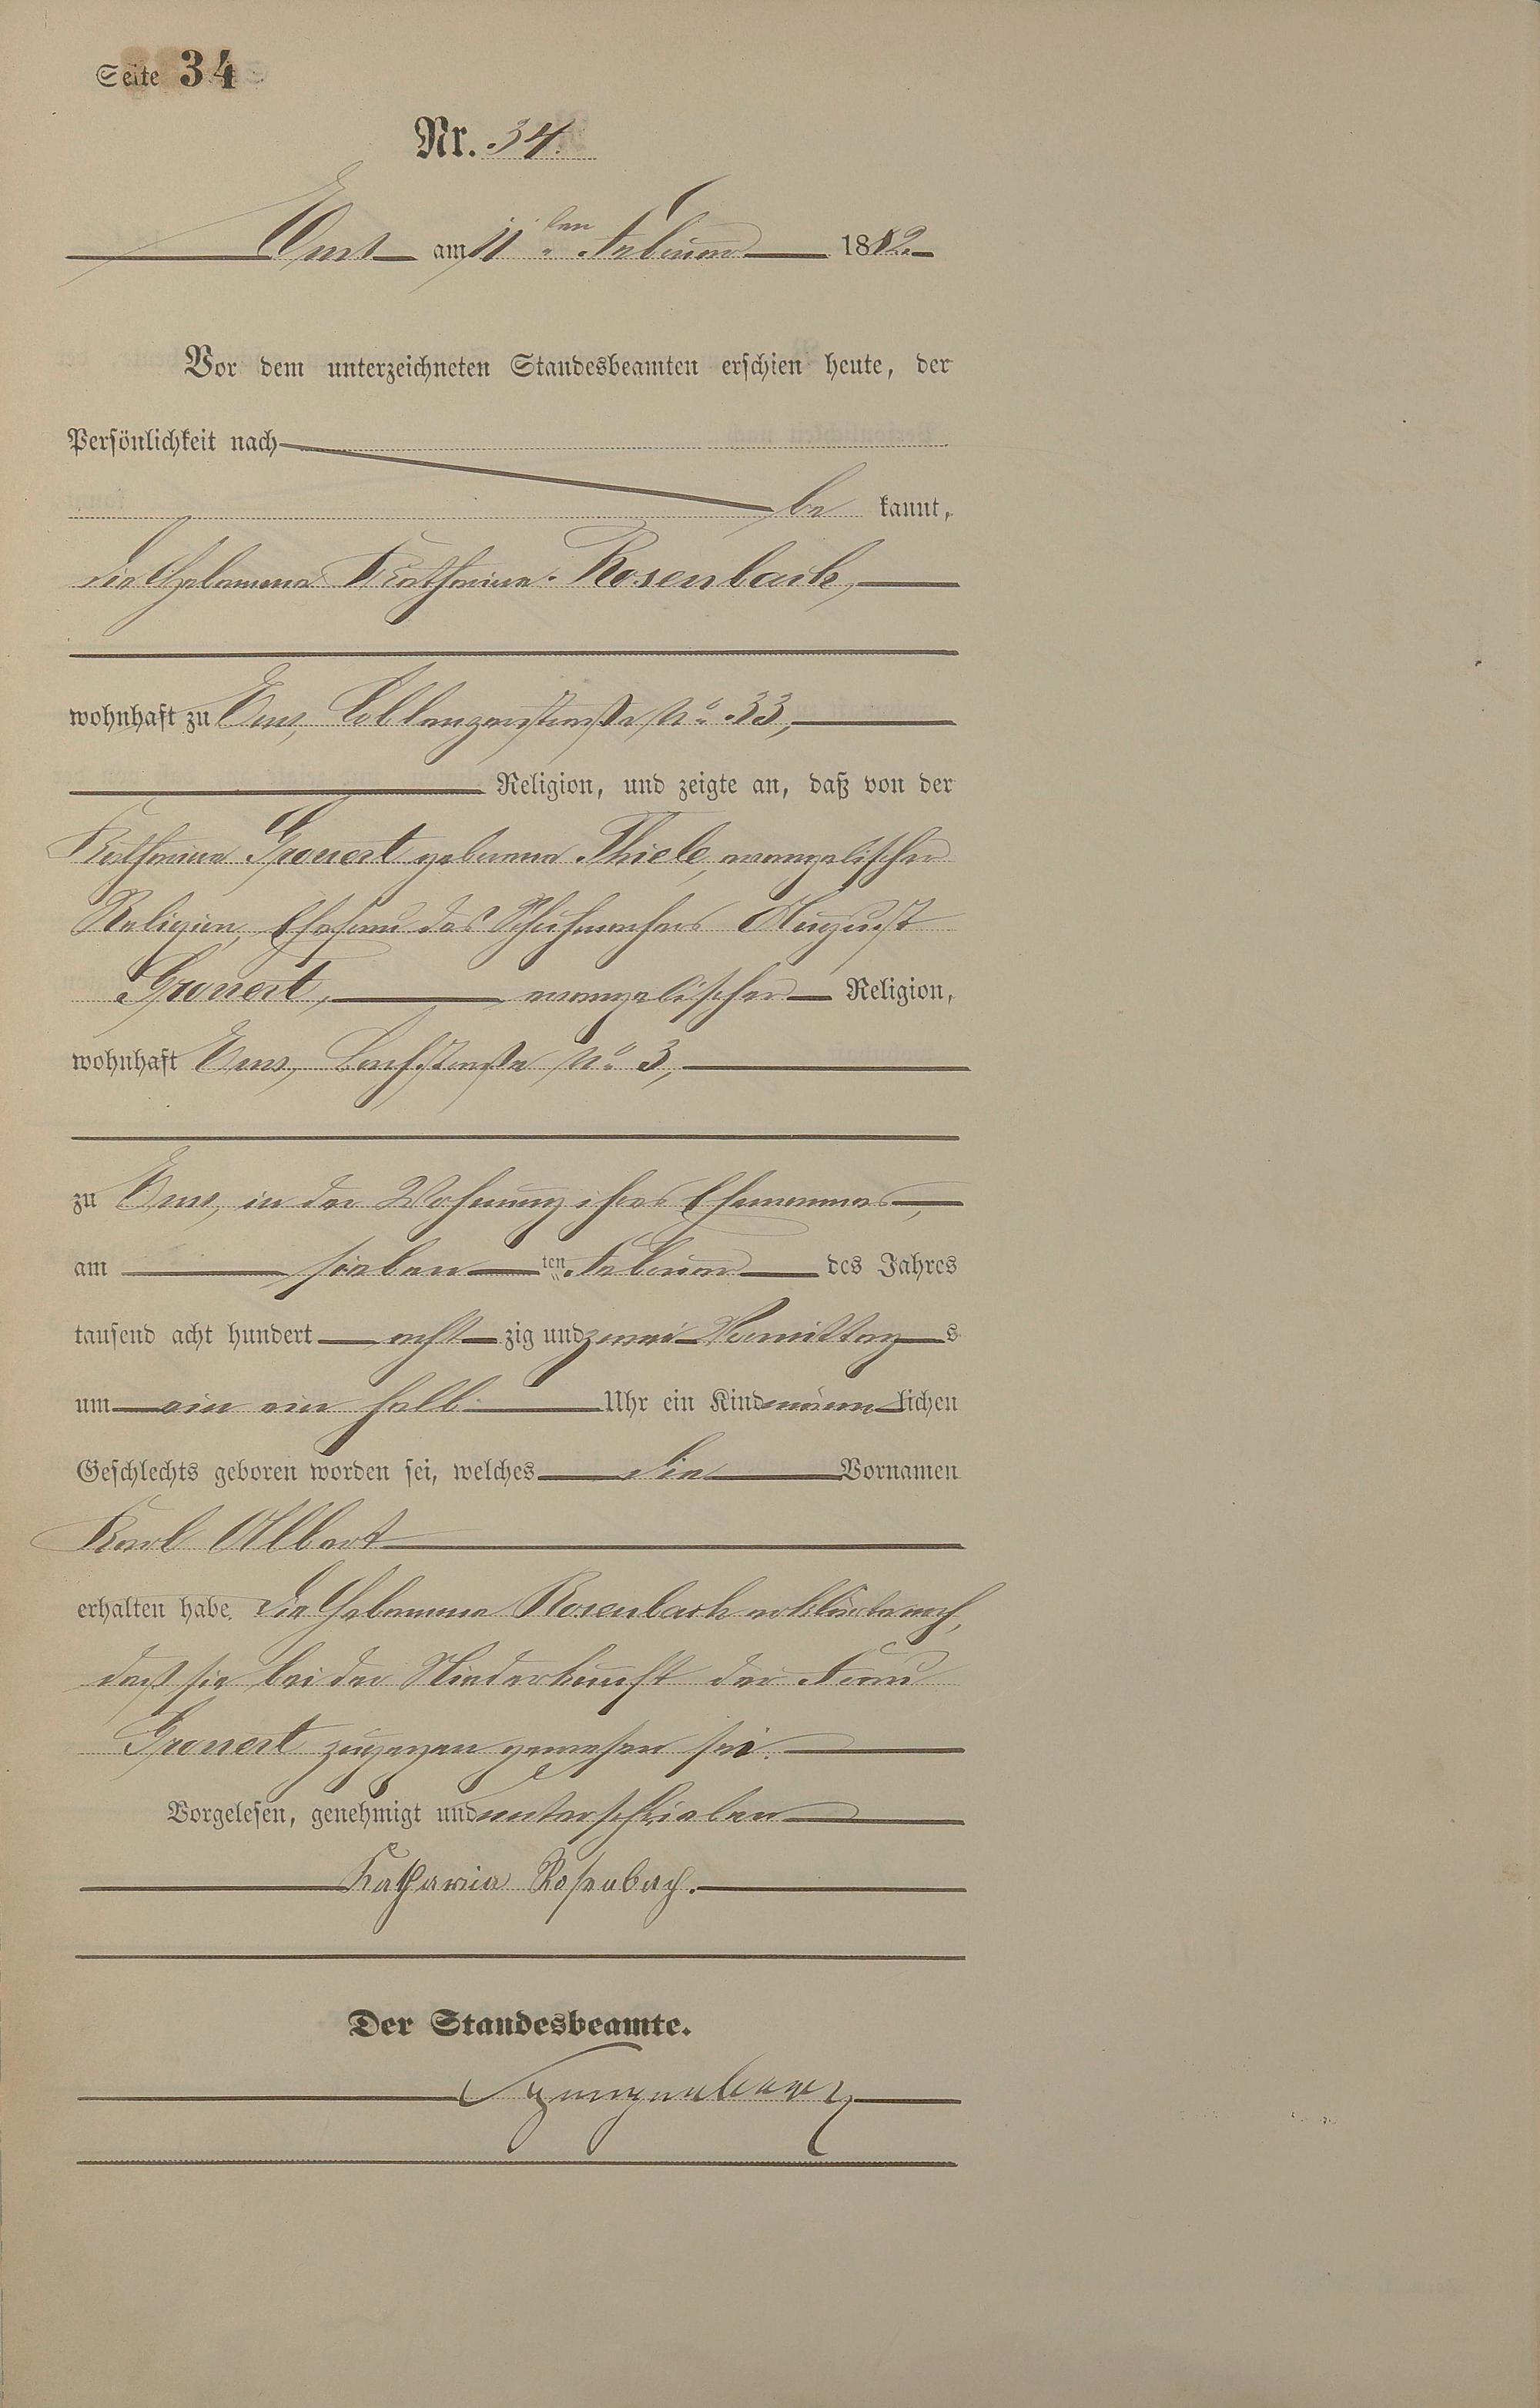 Seite 34
Nr. 34.
Ems am 11ten Februar 1882.
Vor dem unterzeichneten Standesbeamten erschien heute, der
Persönlichkeit nach
be kannt,
die Hebamme Katharina Rosenbach,
wohnhaft zu Ems, Coblenzerstraße No. 33,
Religion, und zeigte an, daß von der
Katharina Gronert geborene Thiele, evangelischer
Religion, Ehefrau des Schuhmachers August
Gronert, evangelischer Religion,
wohnhaft Ems, No. 3,
zu Ems, in der Wohnung ihres Ehemannes,
am sieben ten Februar des Jahres
tausend acht hundert acht zig und zwei Vormittag s
um ein ein halb Uhr ein Kind männ lichen
Geschlechts geboren worden sei, welches die Vornamen
Karl Albert
erhalten habe. Die Hebamme Rosenbach erklärte noch,
daß sie bei der Niederkunft der Frau
Gronert zugegen gewesen sei.
Vorgelesen, genehmigt und unterschrieben
Katharina Rosenbach.
Der Standesbeamte.